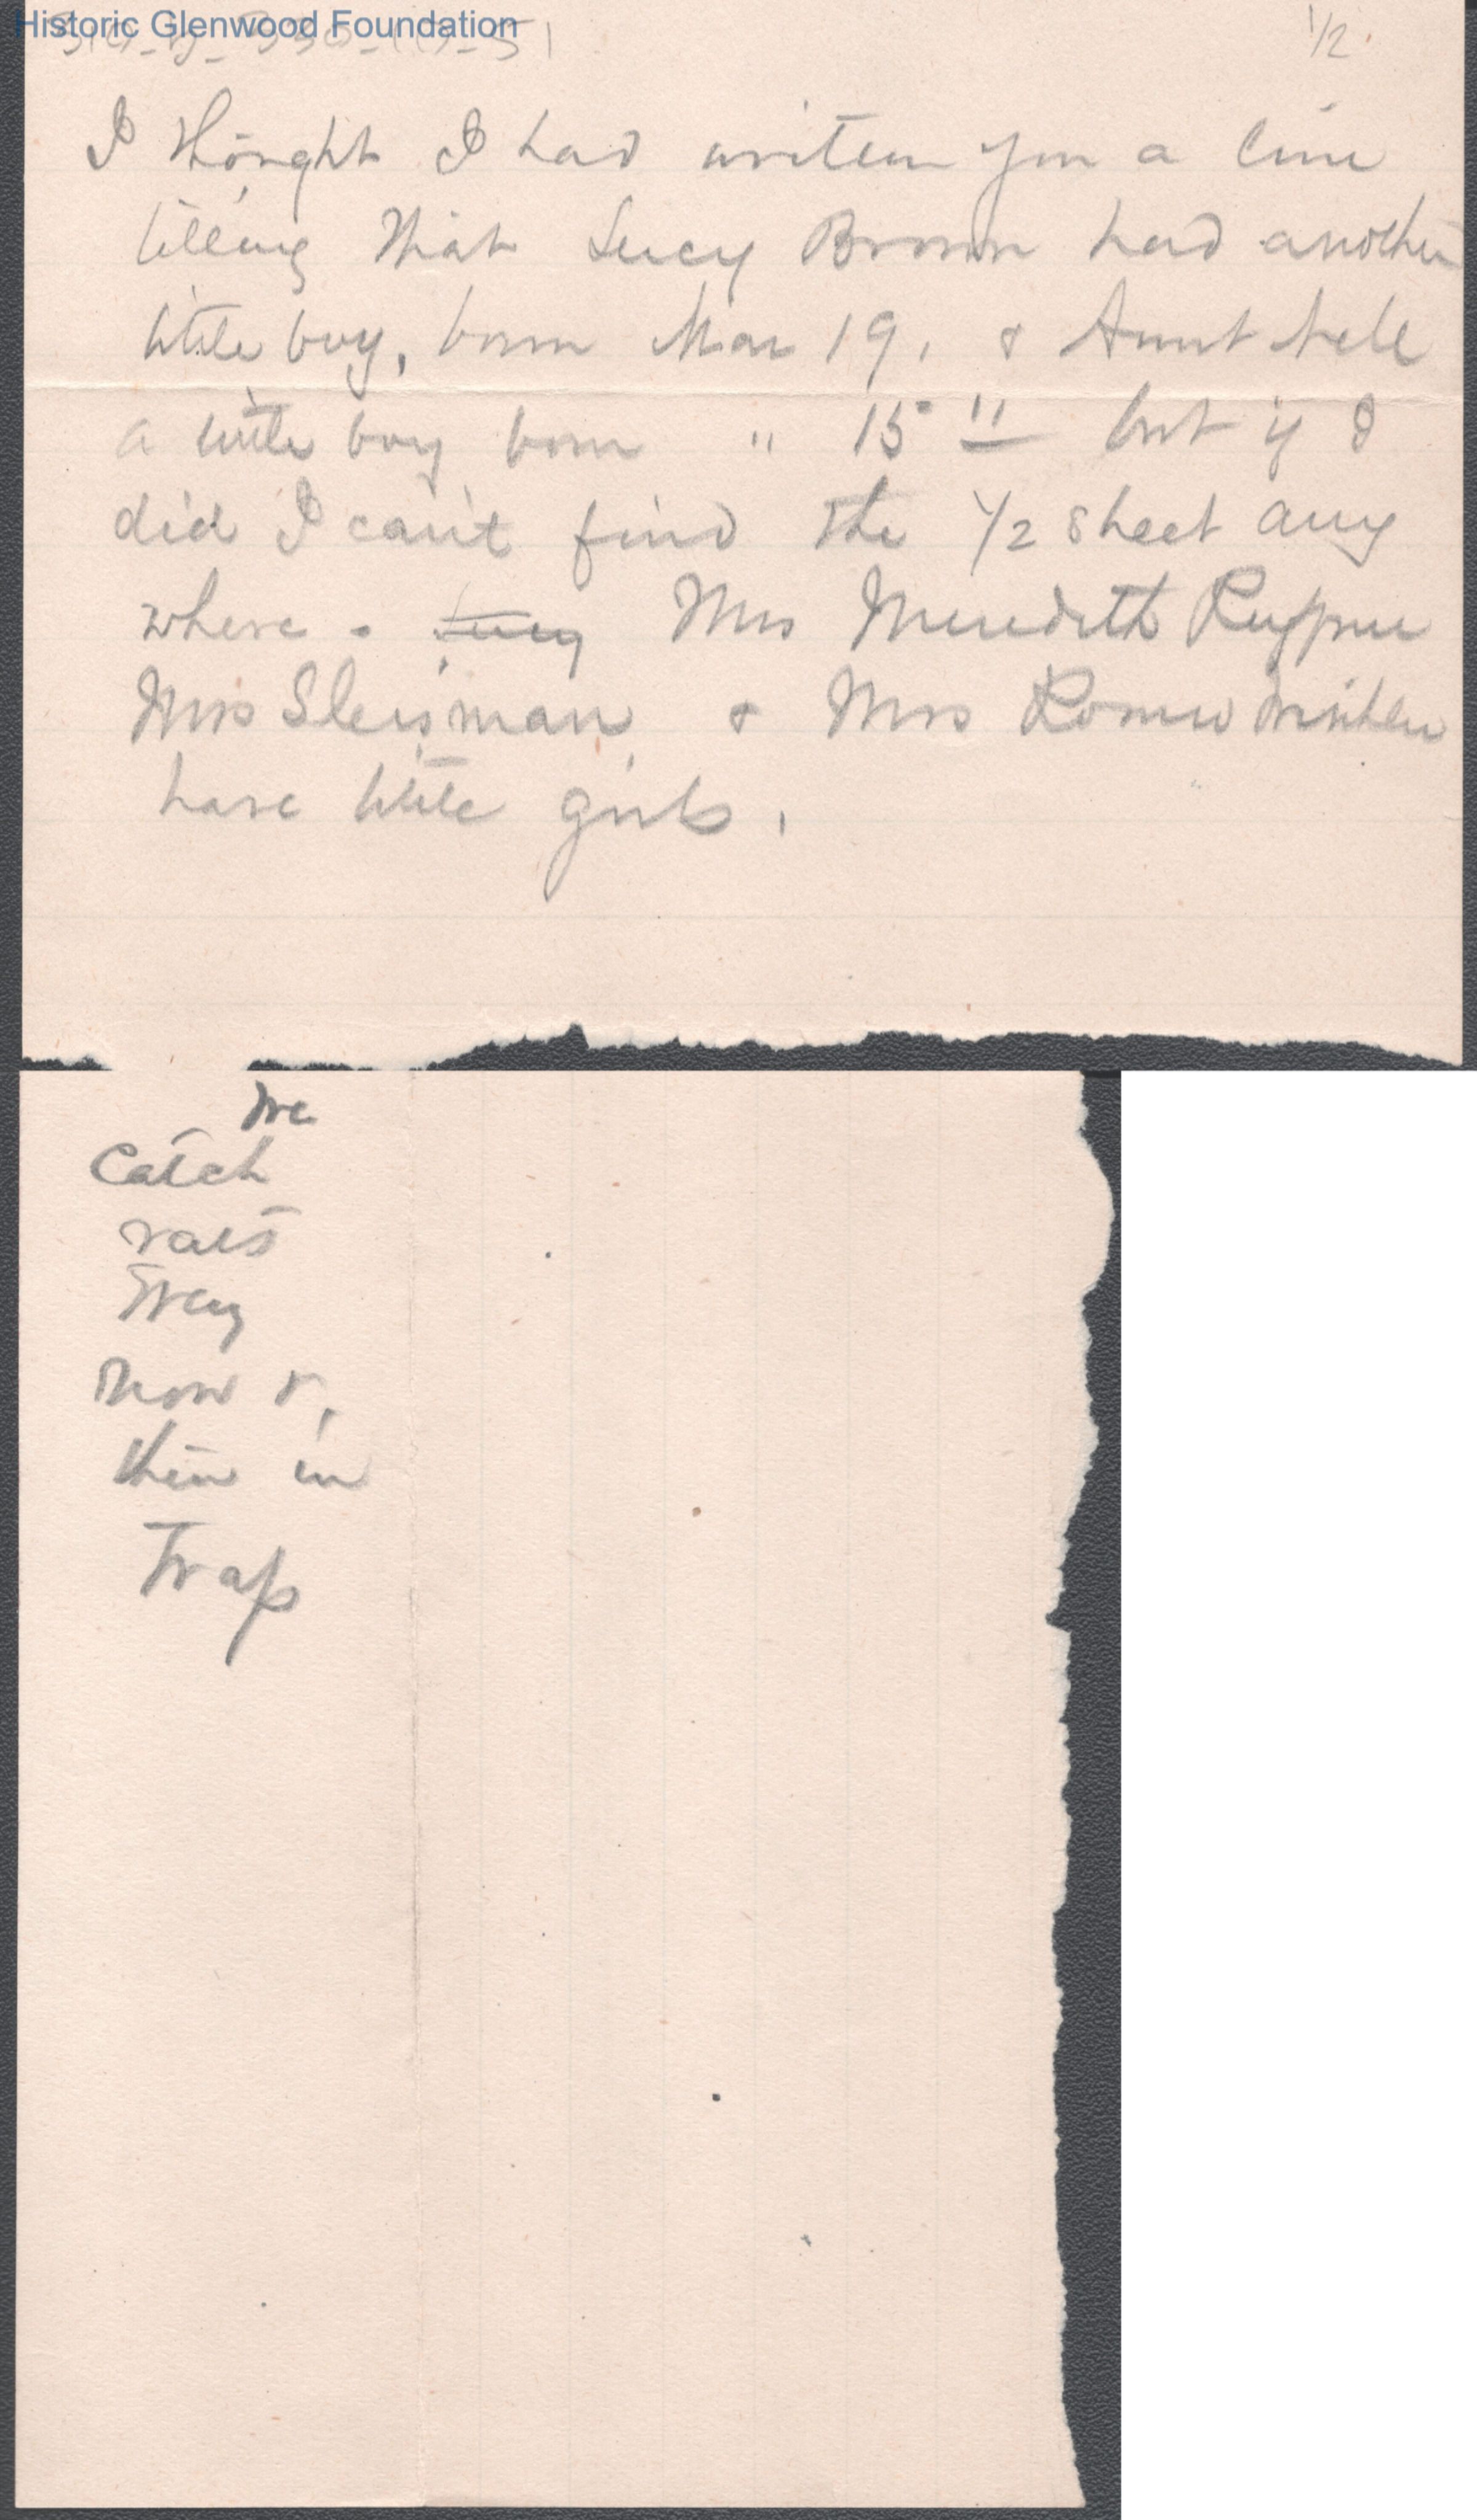 Historic Glenwood Foundation
1/2
I thought I had written you a line
telling that Lucy Brown had another
little boy, born Mar 19, & Aunt Nell
a little boy born " 15 " but if I
did I can't find the 1/2 sheet any
where - Lucy Mrs Meredith Ruffner
Mrs Sleisman & Mrs Romeo
have little girls,
We
Catch
rats
Every
now &
then in
Trap